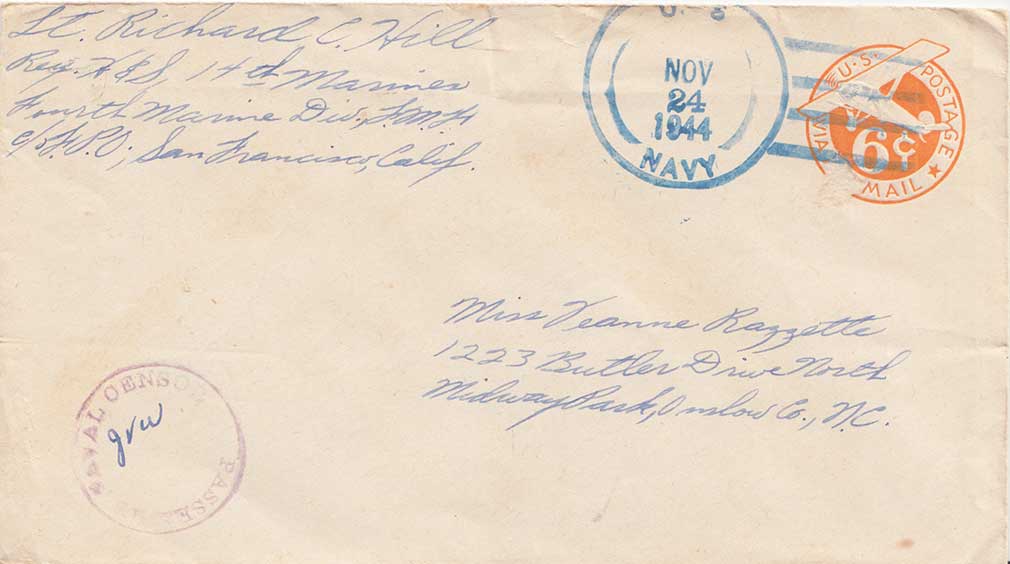 Lt. Richard C. Hill
Reg. H&S, 14th Marines
Fourth Marine Div., F.M.F.
c/o F.P.O., San Francisco, Calif.
U.S.
NOV
24
1944
NAVY
U.S. POSTAGE
6¢
VIA MAIL
Miss Jeanne Razzette
1223 Butler Drive North
Midway Park, Onslow Co., N.C.
NAVAL CENSOR
PASSED